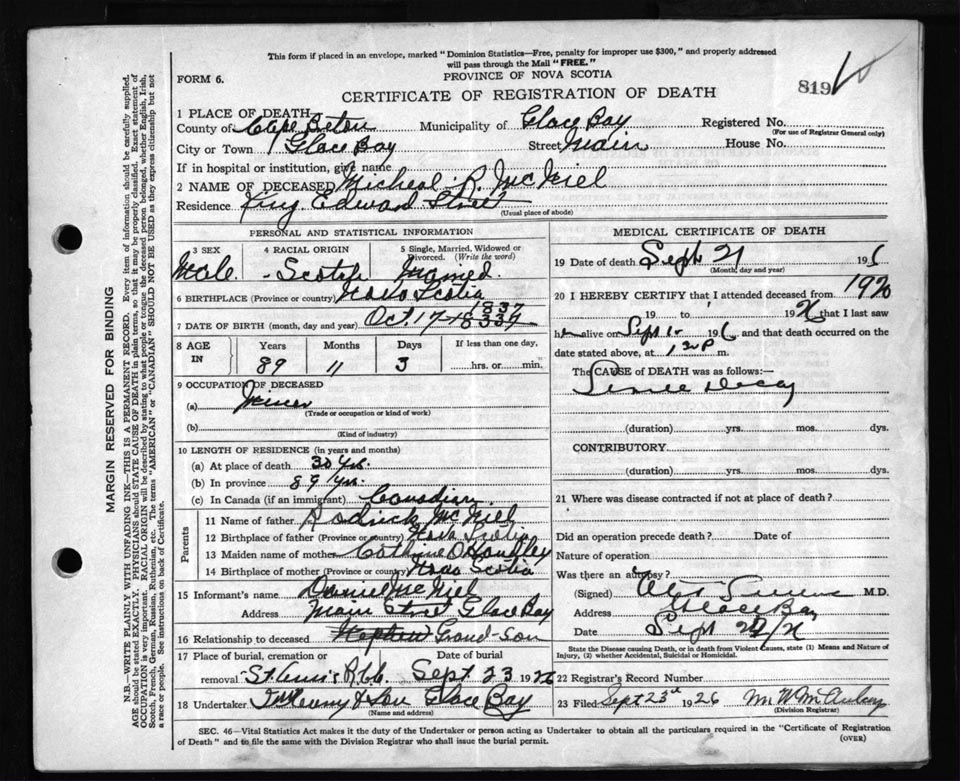 This form if placed in an envelope, marked "Dominion Statistics—Free, penalty for improper use $300," and properly addressed
will pass through the Mail "FREE."
FORM 6.
PROVINCE OF NOVA SCOTIA
819
CERTIFICATE OF REGISTRATION OF DEATH
1 PLACE OF DEATH
County of Cape Breton Municipality of Glace Bay Registered No.
(For use of Registrar General only)
City or Town Glace Bay Street Main House No.
If in hospital or institution, give name
2 NAME OF DECEASED Micheal R. McNiel
Residence King Edward Street
(Usual place of abode)
PERSONAL AND STATISTICAL INFORMATION
3 SEX 4 RACIAL ORIGIN 5 Single, Married, Widowed or Divorced. (Write the word)
Male Scotch Married
6 BIRTHPLACE (Province or country) Nova Scotia
1837
7 DATE OF BIRTH (month, day and year) Oct. 17
8 AGE IN Years Months Days If less than one day,
89 11 3 hrs. or min.
9 OCCUPATION OF DECEASED
(a) Miner
(Trade or occupation or kind of work)
(b)
(Kind of industry)
10 LENGTH OF RESIDENCE (in years and months)
(a) At place of death 30 yrs.
(b) In province 89 yrs.
(c) In Canada (if an immigrant) Canadian
Parents
11 Name of father Rodrick McNiel
12 Birthplace of father (Province or country) Nova Scotia
13 Maiden name of mother Cathrine O'Handley
14 Birthplace of mother (Province or country) Nova Scotia
15 Informant's name Daniel McNiel
Address Main Street Glace Bay
16 Relationship to deceased Nephew Grand-Son
17 Place of burial, cremation or Date of burial
removal St. Anns R.C.C. Sept. 23 1926
18 Undertaker & Son Glace Bay
(Name and address)
MEDICAL CERTIFICATE OF DEATH
19 Date of death Sept 21 196
(Month, day and year)
20 I HEREBY CERTIFY that I attended deceased from 1920
19 to 1926 that I last saw
h alive on Sept 1 196 and that death occurred on
date stated above, at 1 30 P m.
The CAUSE of DEATH was as follows:
Senile Decay
(duration) yrs. mos. dys.
CONTRIBUTORY
(duration) yrs. mos. dys.
21 Where was disease contracted if not at place of death?
Did an operation precede death? Date of
Nature of operation
Was there an autopsy?
(Signed) M.D.
Address Glace Bay
Date Sept
State the Disease causing Death, or in death from Violent Causes, state (1) Means and Nature of Injury, (2) whether Accidental, Suicidal or Homicidal.
22 Registrar's Record Number
23 Filed Sept 23rd 1926
(Division Registrar)
SEC. 46—Vital Statistics Act makes it the duty of the Undertaker or person acting as Undertaker to obtain all the particulars required in the "Certificate of Registration
of Death" and to file the same with the Division Registrar who shall issue the burial permit.
(OVER)
MARGIN RESERVED FOR BINDING
N.B.—WRITE PLAINLY WITH UNFADING INK—THIS IS A PERMANENT RECORD. Every item of information should be carefully supplied.
AGE should be stated EXACTLY. PHYSICIANS should STATE CAUSE OF DEATH in plain terms, so that it may be properly classified. Exact statement of
OCCUPATION is very important. RACIAL ORIGIN will be described by stating to what people or tongue the deceased person belonged, whether English, Irish,
Scotch, French, German, Russian, Ruthenian, etc. The terms "AMERICAN" or "CANADIAN" SHOULD NOT BE USED as they express citizenship but not
a race or people. See instructions on back of Certificate.